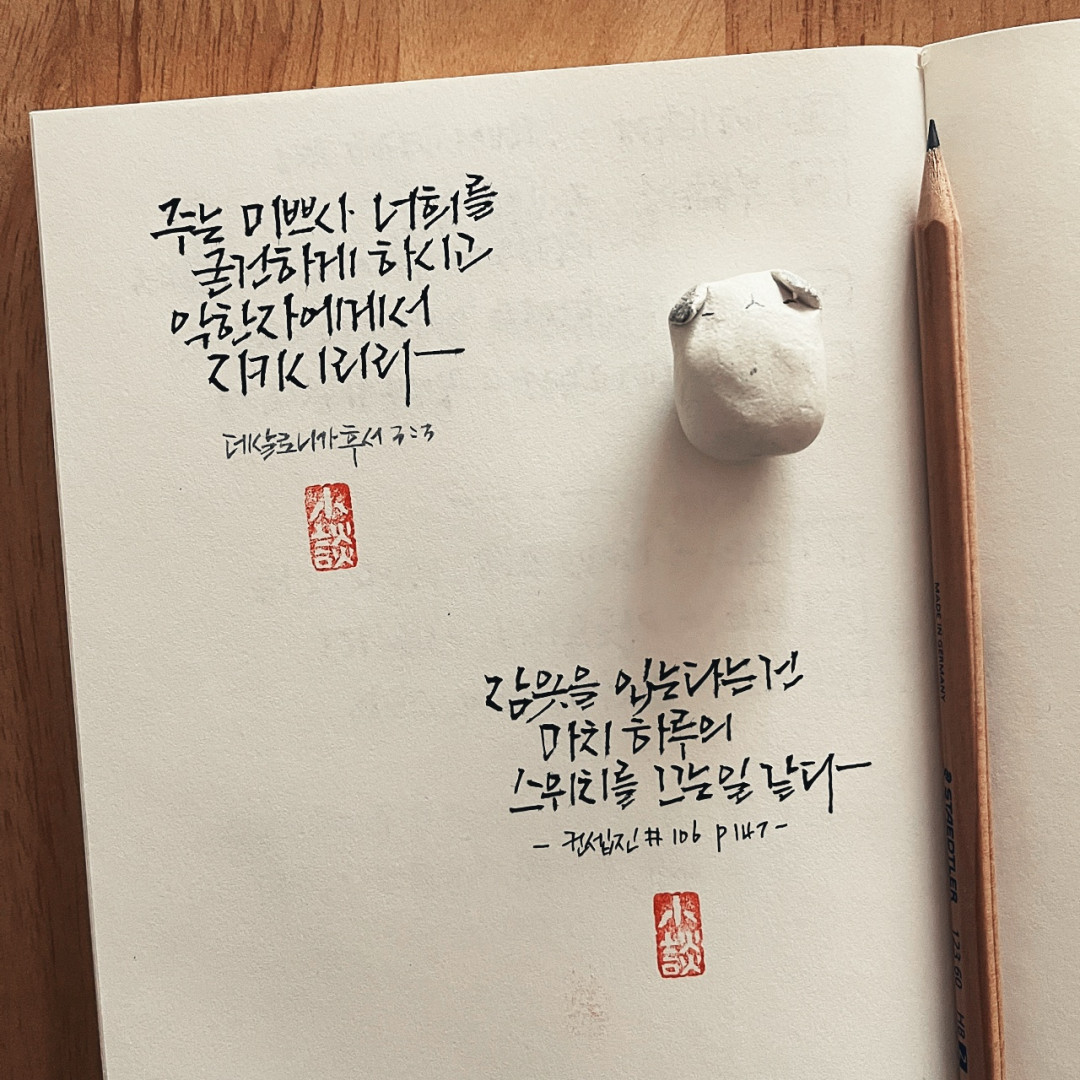 주는 미쁘사 너희를
굳건하게 하시고
악한자에게서
지키시리라—
데살로니가후서 3:3
小談
잠옷을 입는다는건
마치 하루의
스위치를 끄는일 같다—
- 컨셉진 # 106 p147 -
小談
MADE IN GERMANY
STAEDTLER 123 60 HB 2